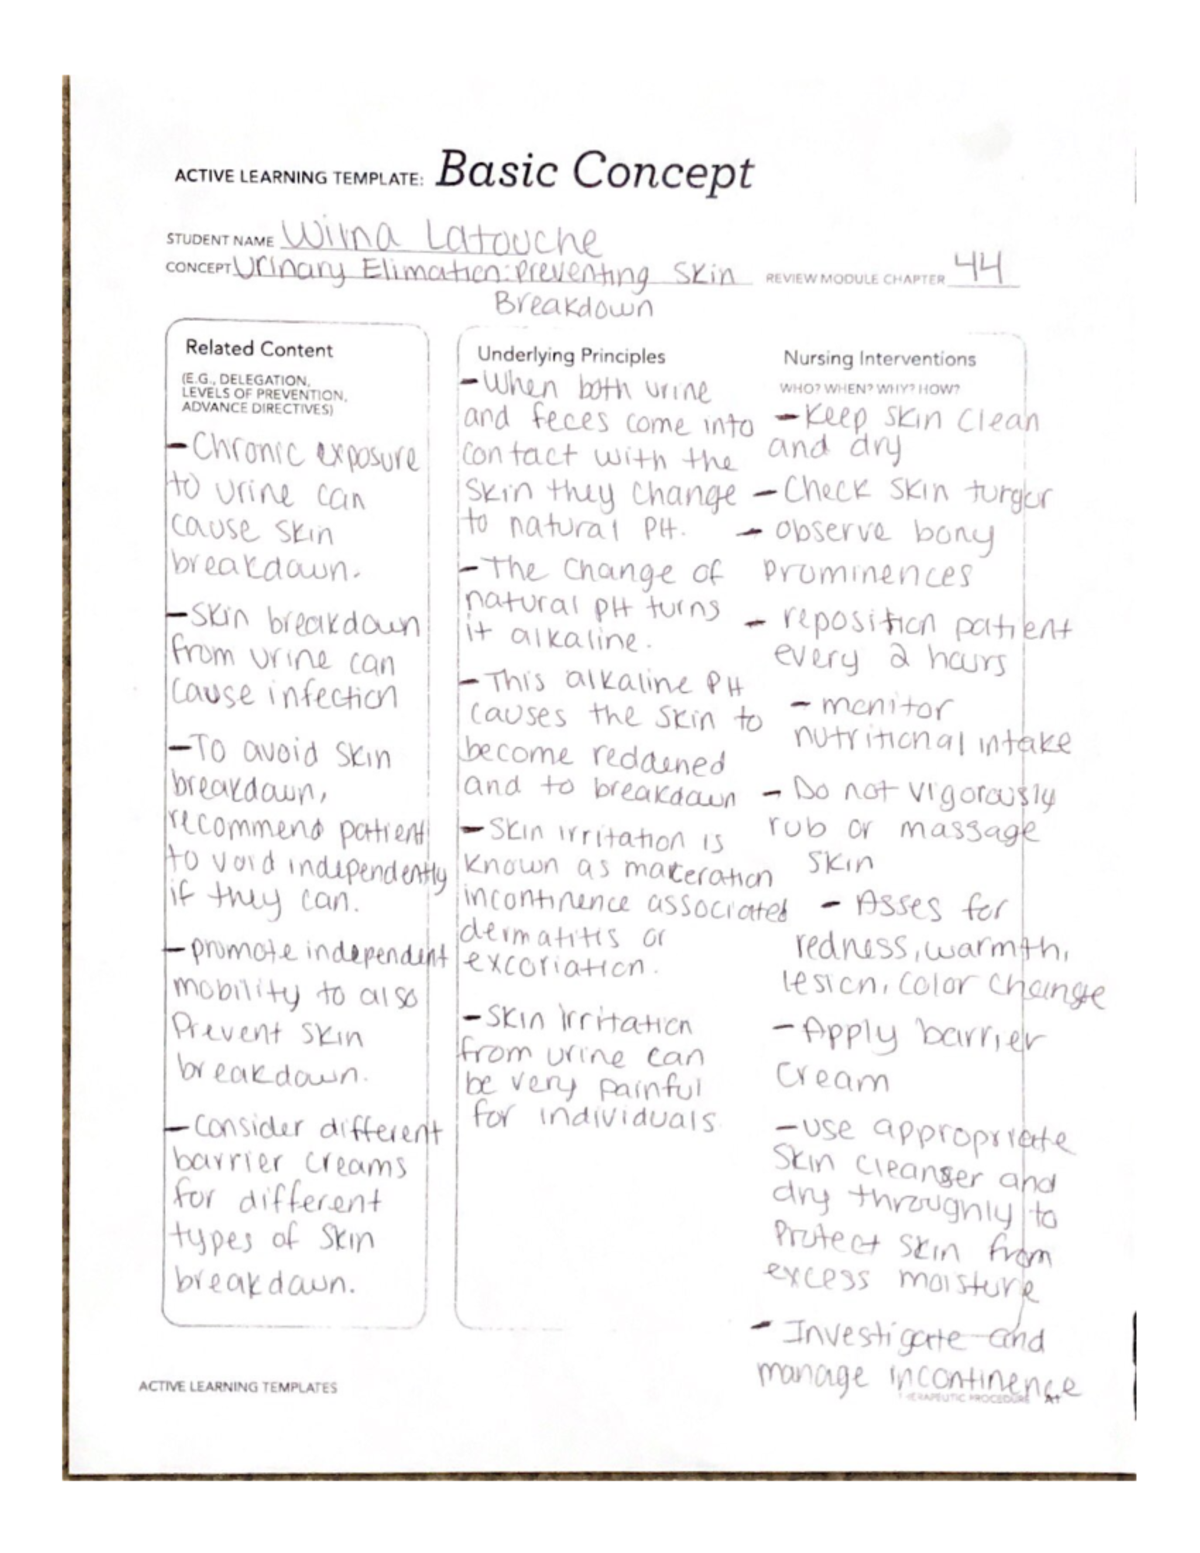 ACTIVE LEARNING TEMPLATE: Basic Concept
STUDENT NAME Wilna Latouche
CONCEPT Urinary Elimation: Preventing Skin
Breakdown
REVIEW MODULE CHAPTER 44
Related Content
(E.G., DELEGATION,
LEVELS OF PREVENTION,
ADVANCE DIRECTIVES)
- Chronic exposure
to urine can
cause skin
breakdown.
- Skin breakdown
from urine can
cause infection
- To avoid skin
breakdown,
recommend patient
to void independently
if they can.
- promote independent
mobility to also
Prevent skin
breakdown.
- Consider different
barrier creams
for different
types of skin
breakdown.
Underlying Principles
- When both urine
and feces come into
contact with the
skin they change
to natural PH.
- The change of
natural pH turns
it alkaline.
- This alkaline PH
causes the skin to
become reddened
and to breakdown
- Skin irritation is
known as maceration
incontinence associated
dermatitis or
excoriation.
- Skin irritation
from urine can
be very painful
for individuals.
Nursing Interventions
WHO? WHEN? WHY? HOW?
- Keep skin clean
and dry
- Check skin turgor
- observe bony
prominences
- reposition patient
every 2 hours
- monitor
nutritional intake
- Do not vigorously
rub or massage
skin
- Asses for
redness, warmth,
lesion, color change
- Apply barrier
cream
- use appropriate
skin cleanser and
dry throughly to
Protect skin from
excess moisture
- Investigate and
manage incontinence
ACTIVE LEARNING TEMPLATES
THERAPEUTIC PROCEDURE A1